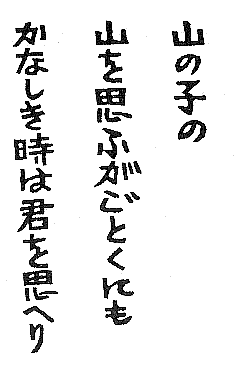 山の子の
山を思ふがごとくにも
かなしき時は君を思へり